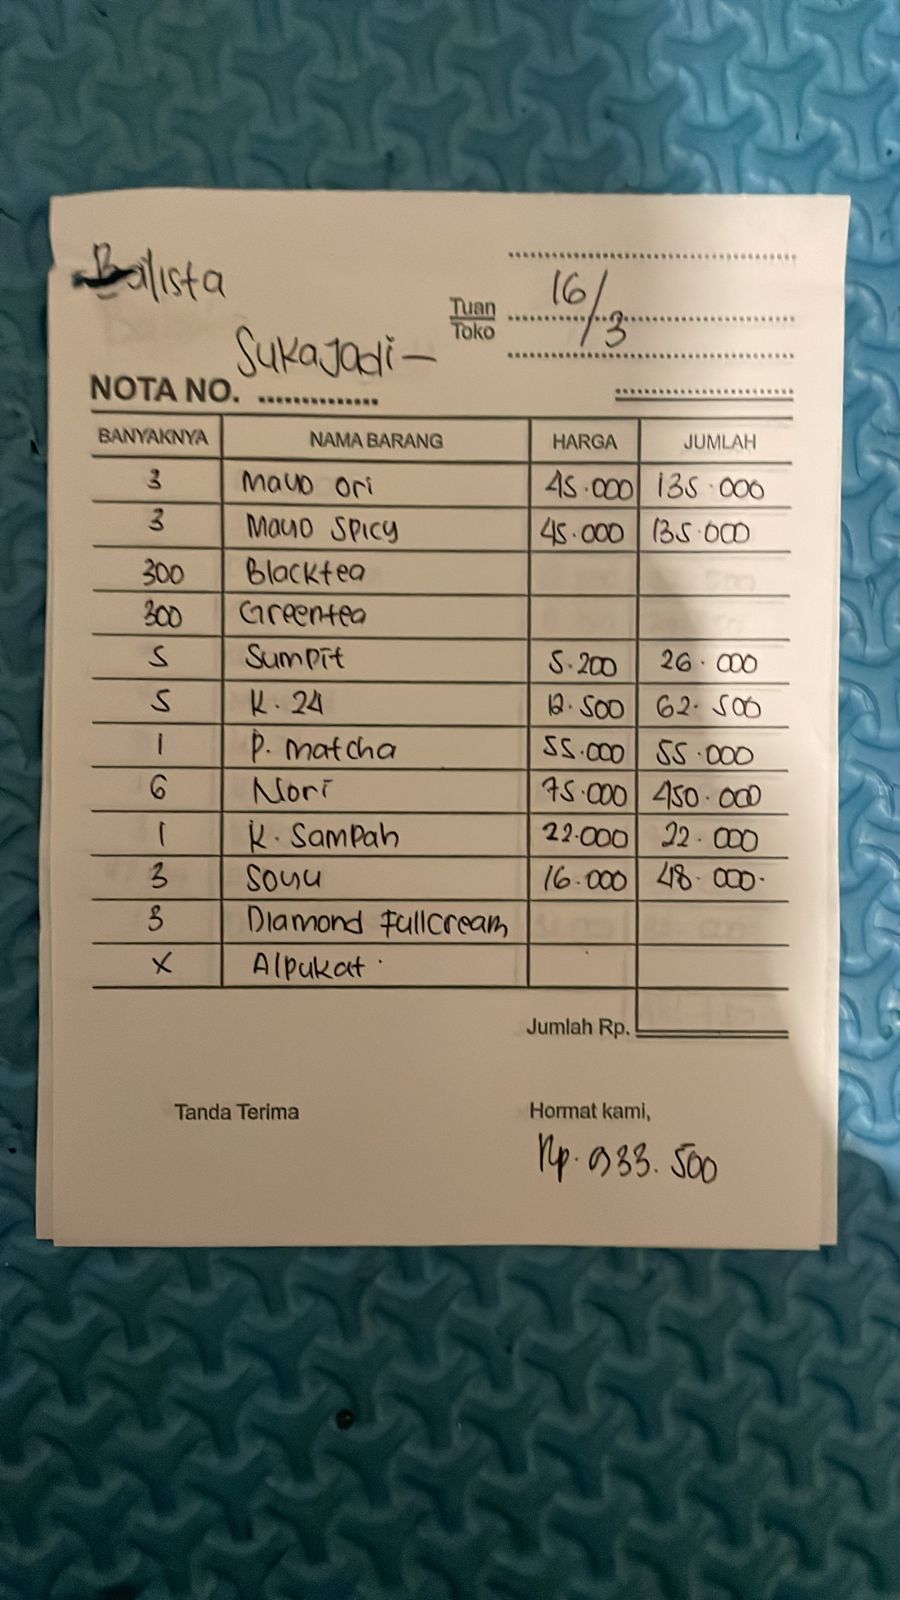 Balista
16/3
Tuan
Toko
Sukajadi-
NOTA NO. ..............
BANYAKNYA NAMA BARANG HARGA JUMLAH
3 Mayo ori 45.000 135.000
3 Mayo Spicy 45.000 135.000
300 Blacktea
300 Greentea
5 Sumpit 5.200 26.000
5 K.24 12.500 62.500
1 P. matcha 55.000 55.000
6 Nori 75.000 450.000
1 K. Sampah 22.000 22.000
3 Soyu 16.000 48.000.
3 Diamond Fullcream
X Alpukat
Jumlah Rp.
Tanda Terima Hormat kami,
Rp. 933.500